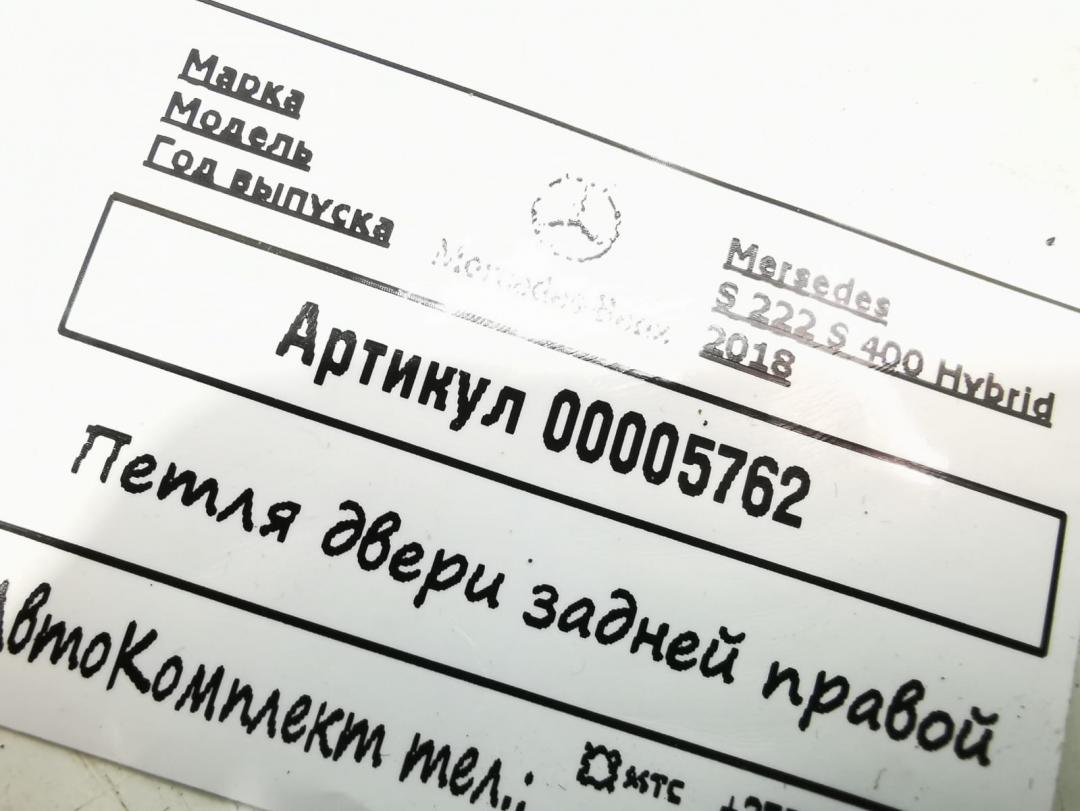 Марка
Модель
Год выпуска
Mercedes-Benz
Mersedes
S 222 S 400 Hybrid
2018
Артикул 00005762
Петля двери задней правой
АвтоКомплект тел.:
мтс